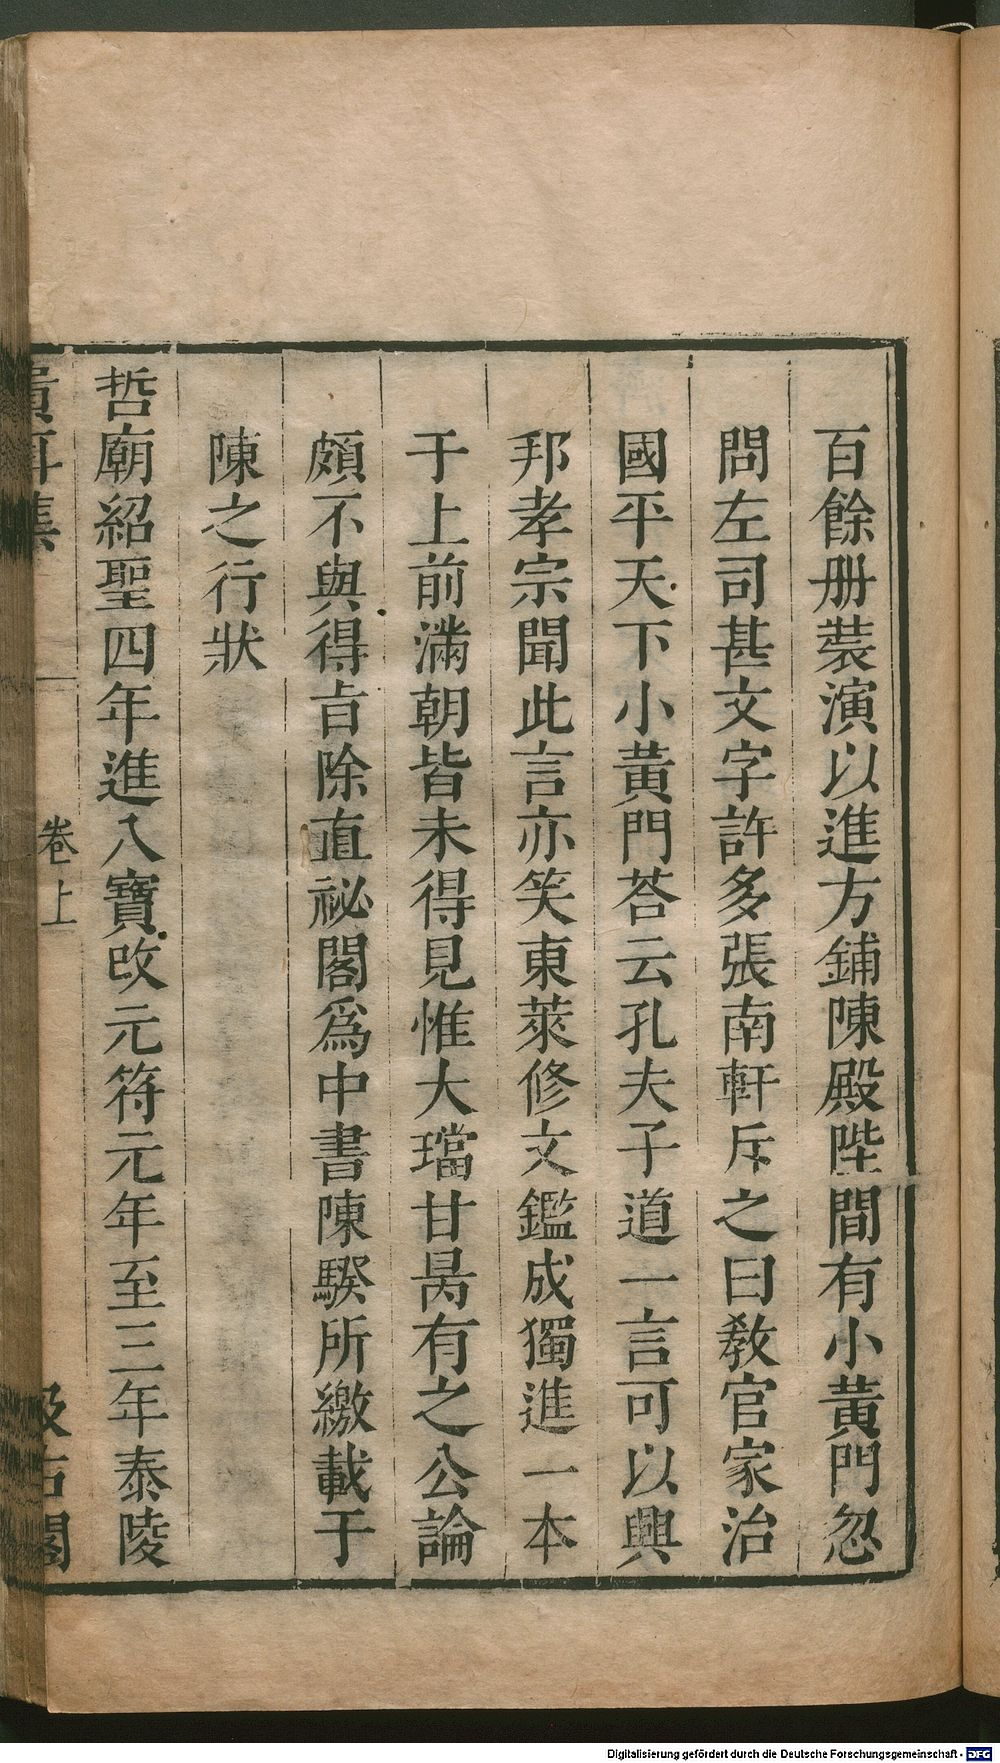 百餘册裝演以進方鋪陳殿陛間有小黃門忽
問左司甚文字許多張南軒斥之曰教官家治
國平天下小黃門荅云孔夫子道一言可以興
邦孝宗聞此言亦笑東萊修文鑑成獨進一本
于上前滿朝皆未得見惟大璫甘昺有之公論
頗不與得旨除直祕閣爲中書陳騤所繳載于
陳之行狀
哲廟紹聖四年進八寶改元符元年至三年泰陵
貴耳集
卷上
汲古閣
Digitalisierung gefördert durch die Deutsche Forschungsgemeinschaft - DFG